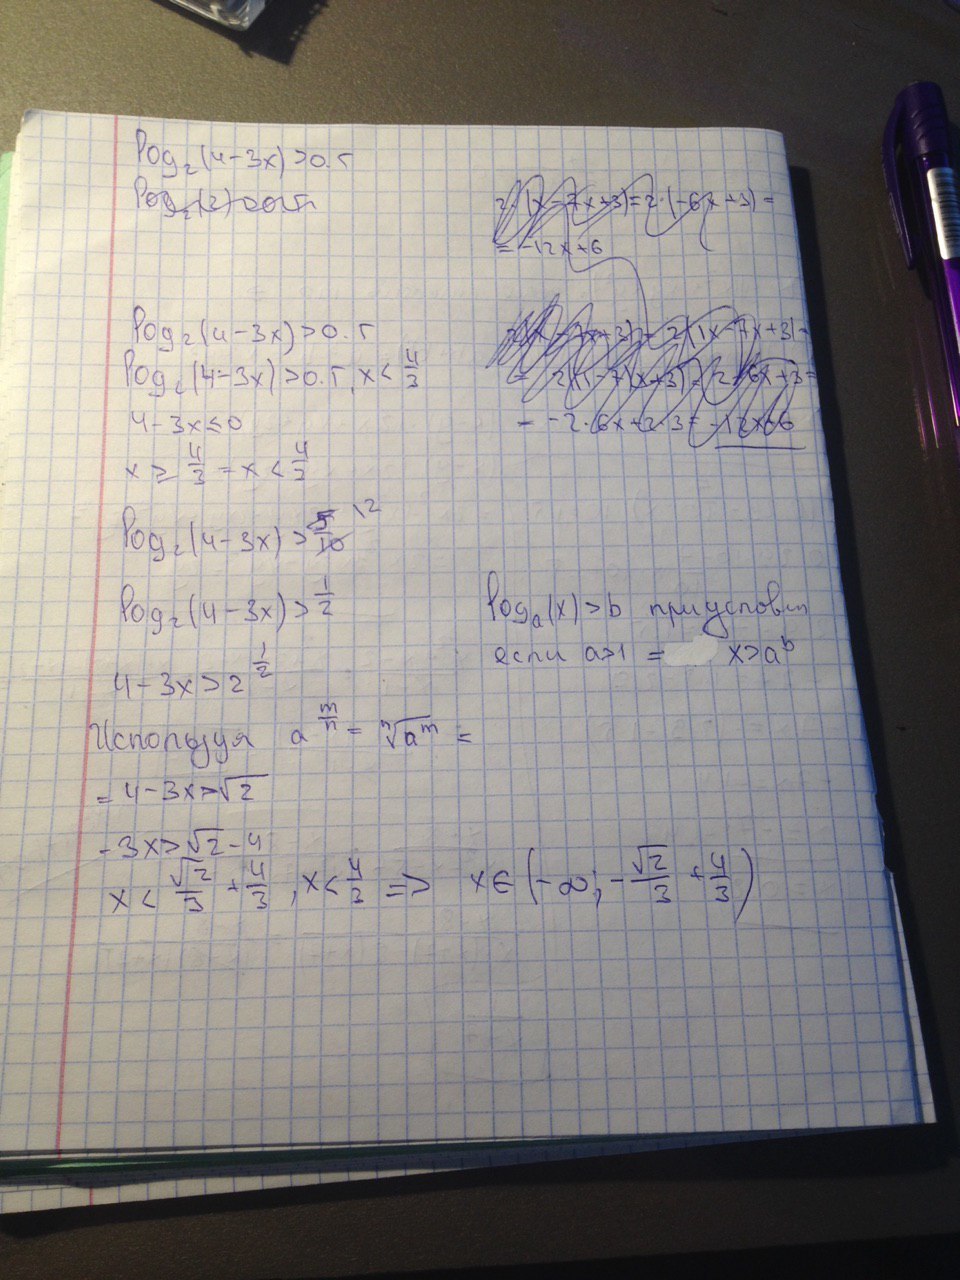 log₂(4-3x)>0.5
2·(x-7x+3)=2·(-6x+3)=
=-12x+6
log₂(4-3x)>0.5
log₂(4-3x)>0.5, x<4/3
4-3x≤0
x≥4/3 = x<4/3
log₂(4-3x)>5/10 \2
log₂(4-3x)>1/2
4-3x>2^(1/2)
Используя a^(m/n) = ⁿ√(a^m) =
= 4-3x>√2
-3x>√2-4
x<√2/3 + 4/3, x<4/3 => x∈(-∞; -√2/3 + 4/3)
2(1x-7x+3)=
- -2·6x+2·3= -12x+6
logₐ(x)>b при условии
если a>1 = x>a^b